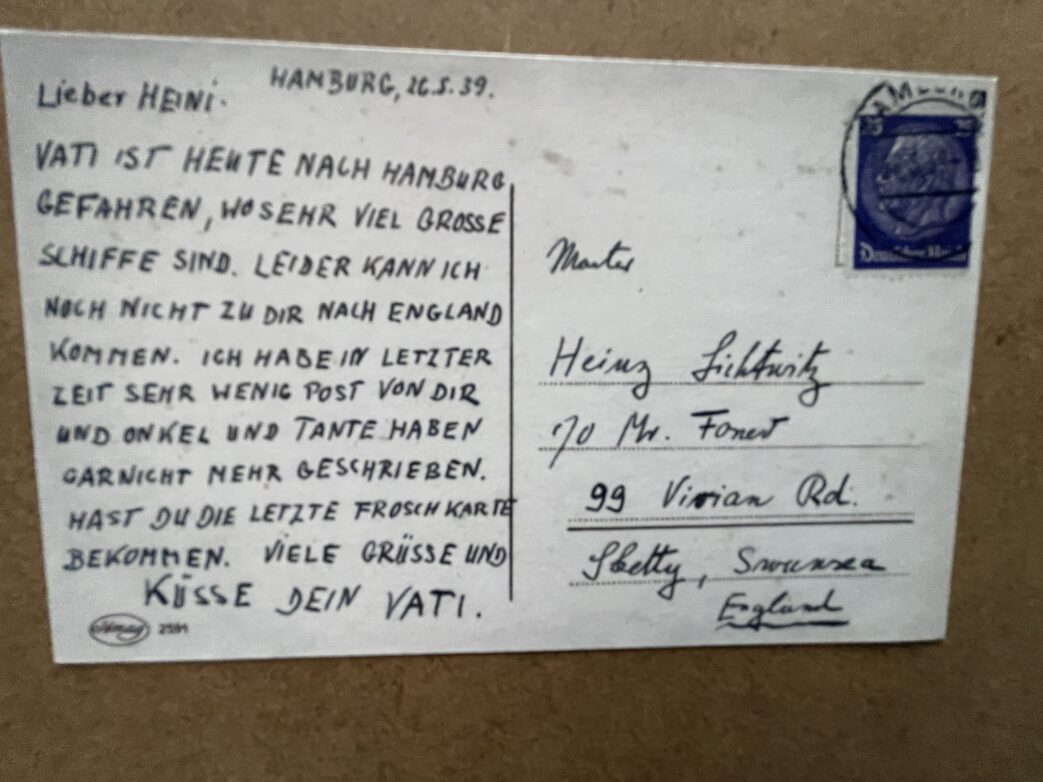 HAMBURG, 26.5.39.
Lieber HEINI.
VATI IST HEUTE NACH HAMBURG
GEFAHREN, WO SEHR VIEL GROSSE
SCHIFFE SIND. LEIDER KANN ICH
NOCH NICHT ZU DIR NACH ENGLAND
KOMMEN. ICH HABE IN LETZTER
ZEIT SEHR WENIG POST VON DIR
UND ONKEL UND TANTE HABEN
GARNICHT MEHR GESCHRIEBEN.
HAST DU DIE LETZTE FROSCHKARTE
BEKOMMEN. VIELE GRÜSSE UND
KÜSSE DEIN VATI.
2591
25 25
Deutsches Reich
Master
Heinz Lichtwitz
Mr. Foner
99 Vivian Rd.
Sketty, Swansea
England